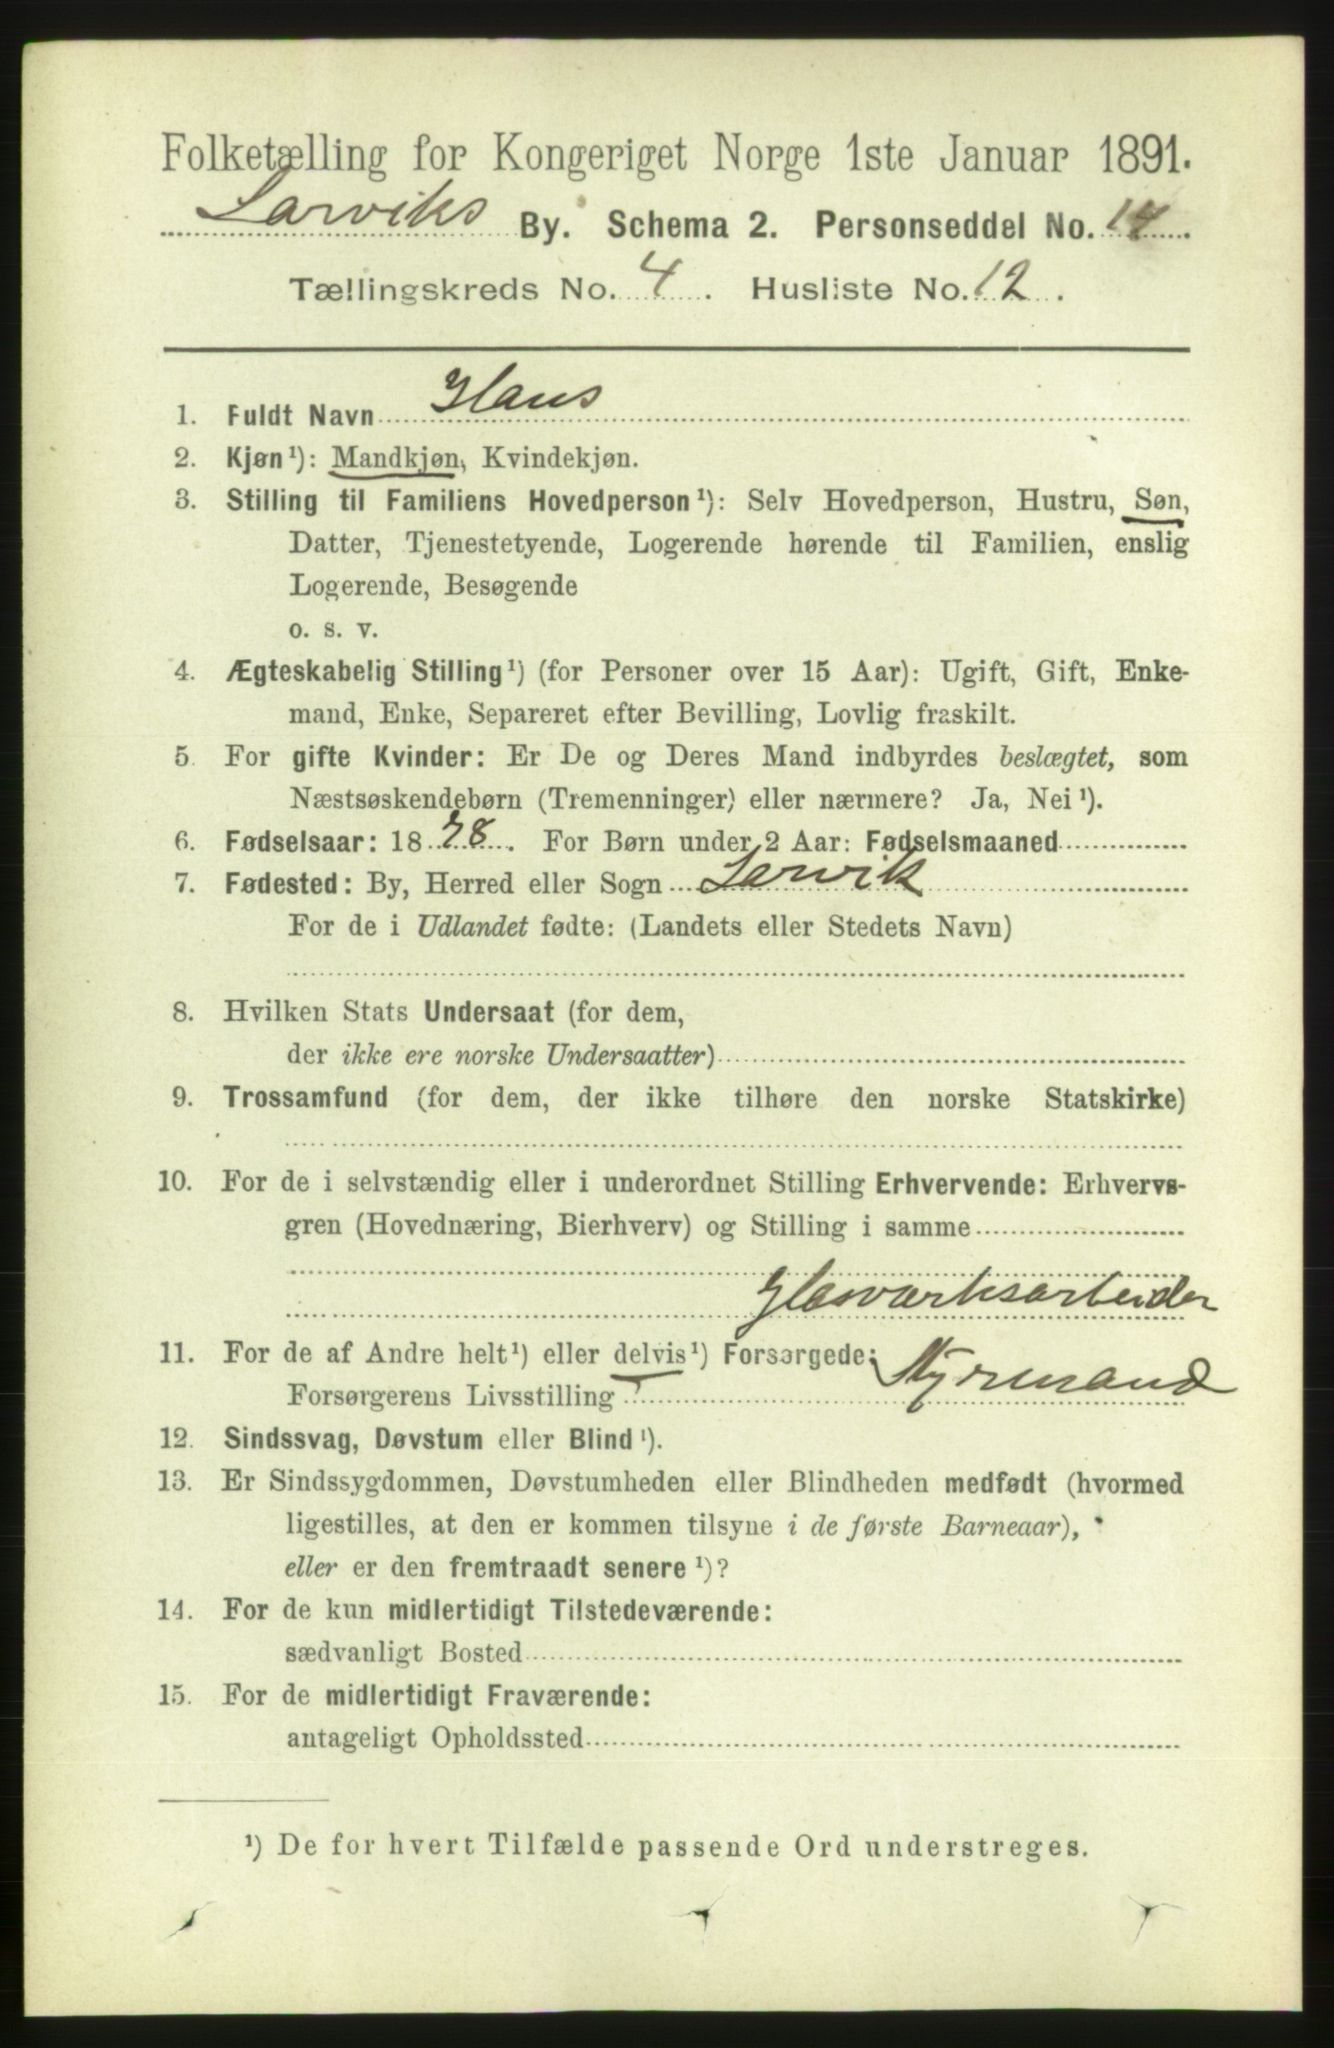 Folketælling for Kongeriget Norge 1ste Januar 1891.
Larviks By. Schema 2. Personseddel No. 14.
Tællingskreds No. 4. Husliste No. 12.
1. Fuldt Navn Hans
2. Kjøn¹): Mandkjøn, Kvindekjøn.
3. Stilling til Familiens Hovedperson¹): Selv Hovedperson, Hustru, Søn,
Datter, Tjenestetyende, Logerende hørende til Familien, enslig
Logerende, Besøgende
o. s. v.
4. Ægteskabelig Stilling¹) (for Personer over 15 Aar): Ugift, Gift, Enke-
mand, Enke, Separeret efter Bevilling, Lovlig fraskilt.
5. For gifte Kvinder: Er De og Deres Mand indbyrdes beslægtet, som
Næstsøskendebørn (Tremenninger) eller nærmere? Ja, Nei¹).
6. Fødselsaar: 1878. For Børn under 2 Aar: Fødselsmaaned
7. Fødested: By, Herred eller Sogn Larvik
For de i Udlandet fødte: (Landets eller Stedets Navn)
8. Hvilken Stats Undersaat (for dem,
der ikke ere norske Undersaatter)
9. Trossamfund (for dem, der ikke tilhøre den norske Statskirke)
10. For de i selvstændig eller i underordnet Stilling Erhvervende: Erhvervs-
gren (Hovednæring, Bierhverv) og Stilling i samme
Glasværksarbeider
11. For de af Andre helt¹) eller delvis¹) Forsørgede:
Forsørgerens Livsstilling Styrmand
12. Sindssvag, Døvstum eller Blind¹).
13. Er Sindssygdommen, Døvstumheden eller Blindheden medfødt (hvormed
ligestilles, at den er kommen tilsyne i de første Barneaar),
eller er den fremtraadt senere¹)?
14. For de kun midlertidigt Tilstedeværende:
sædvanligt Bosted
15. For de midlertidigt Fraværende:
antageligt Opholdssted
¹) De for hvert Tilfælde passende Ord understreges.